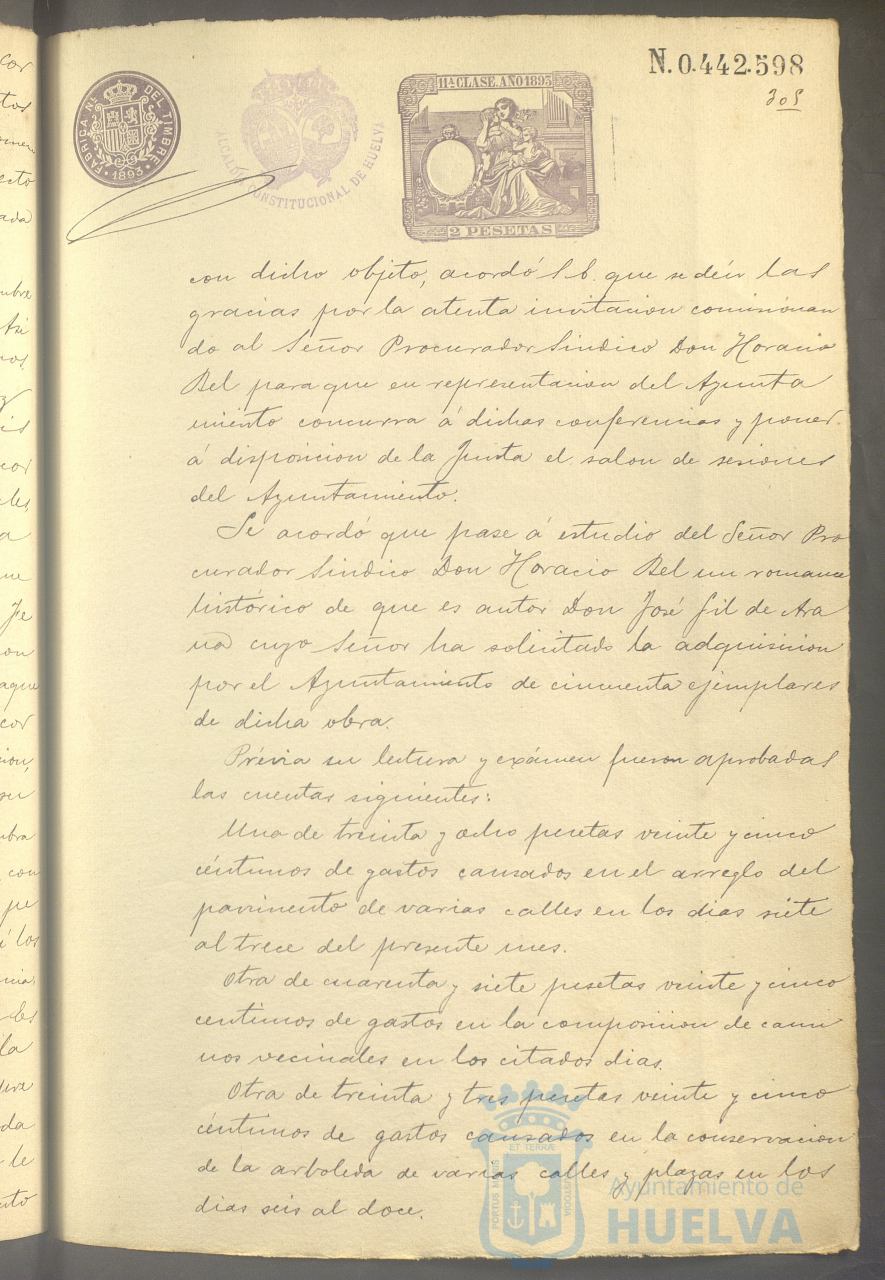 FABRICA Nal. DEL TIMBRE
1893
ALCALDÍA CONSTITUCIONAL DE HUELVA
11ª CLASE. AÑO 1893
2 PESETAS
N.0.442.598
305
con dicho objeto, acordó S. E. que se dén las
gracias por la atenta invitacion comisionan
do al Señor Procurador Sindico Don Horacio
Bel para que en representacion del Ayunta
miento concurra á dichas conferencias y poner
á disposicion de la Junta el salon de sesiones
del Ayuntamiento.
Se acordó que pase á estudio del Señor Pro
curador Sindico Don Horacio Bel un romance
histórico de que es autor Don José Gil de Ara
na cuyo Señor ha solicitado la adquisicion
por el Ayuntamiento de cincuenta ejemplares
de dicha obra.
Prévia su lectura y exámen fueron aprobadas
las cuentas siguientes:
Una de treinta y ocho pesetas veinte y cinco
céntimos de gastos causados en el arreglo del
pavimento de varias calles en los dias siete
al trece del presente mes.
Otra de cuarenta y siete pesetas veinte y cinco
centimos de gastos en la composicion de cami
nos vecinales en los citados dias.
Otra de treinta y tres pesetas veinte y cinco
céntimos de gastos causados en la conservacion
de la arboleda de varias calles y plazas en los
dias seis al doce.
PORTUS MARIS ET TERRÆ CUSTODIA
Ayuntamiento de
HUELVA